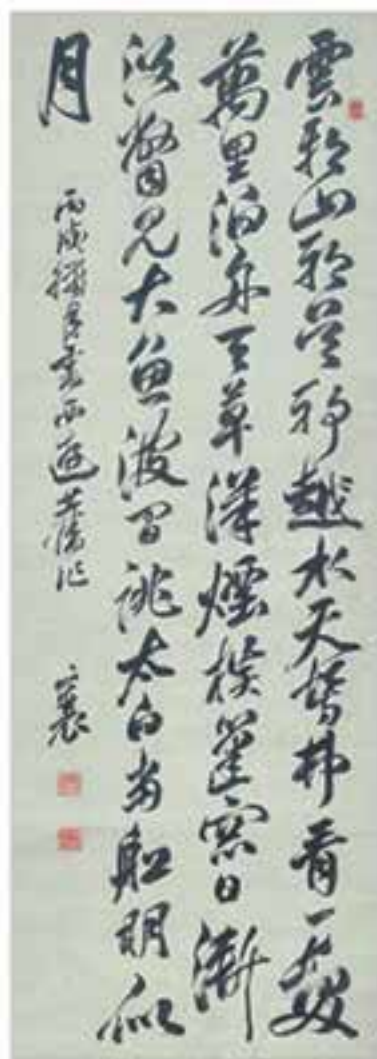 雲耶山耶呉耶越水天髣髴青一髪
萬里泊舟天草洋煙横篷窓日漸
没瞥見大魚波間跳太白當船明似
月
丙戌月書西遊舊作 襄